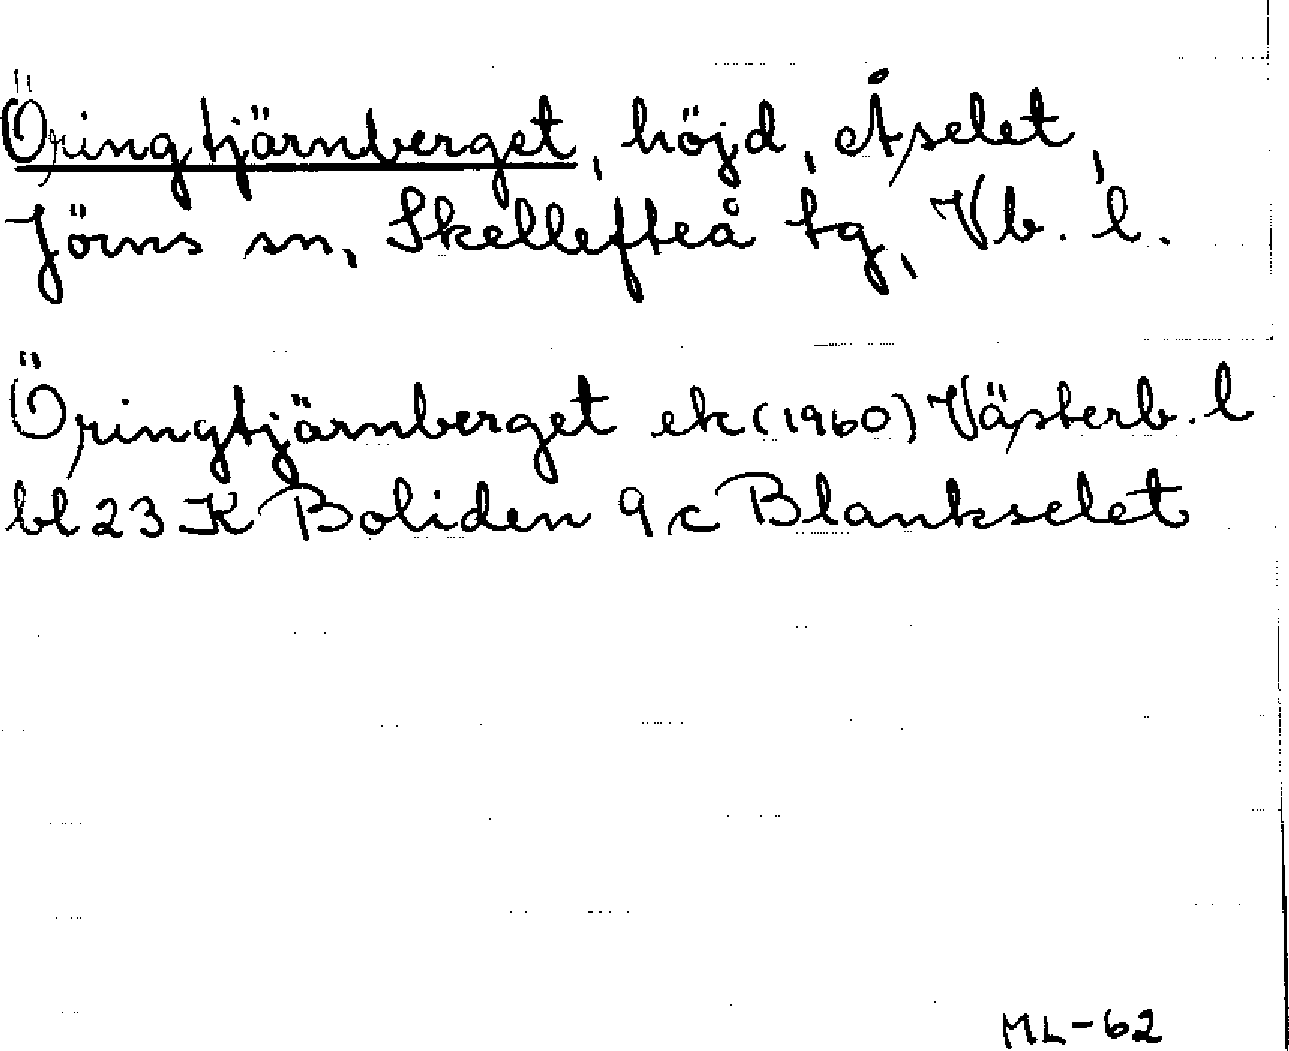 Öringtjärnberget, höjd, Åselet,
Jörns sn, Skellefteå tg, Vb. l.
Öringtjärnberget ek (1960) Västerb. l
bl 23 K Boliden 9 c Blankselet
ML-62